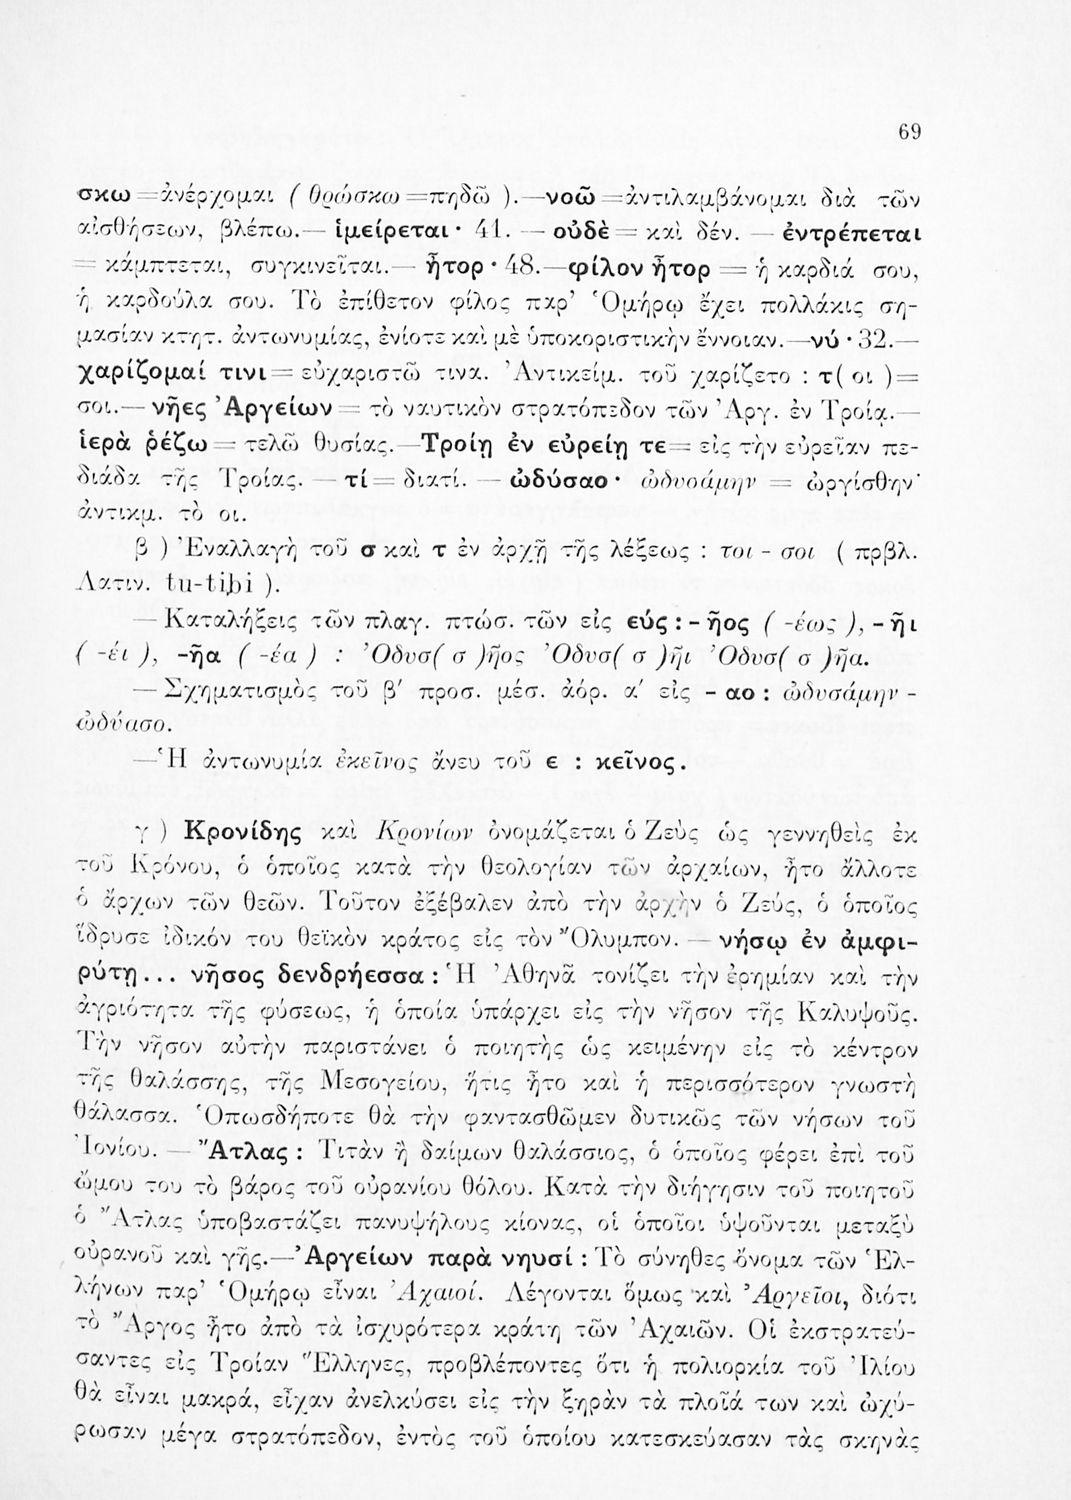 69
σκω=ἀνέρχομαι ( θρώσκω=πηδῶ ).—νοῶ=ἀντιλαμβάνομαι διὰ τῶν
αἰσθήσεων, βλέπω.— ἱμείρεται· 41. — οὐδὲ= καὶ δέν. — ἐντρέπεται
= κάμπτεται, συγκινεῖται.— ἦτορ· 48.—φίλον ἦτορ = ἡ καρδιά σου,
ἡ καρδούλα σου. Τὸ ἐπίθετον φίλος παρ’ Ὁμήρῳ ἔχει πολλάκις ση-
μασίαν κτητ. ἀντωνυμίας, ἐνίοτε καὶ μὲ ὑποκοριστικὴν ἔννοιαν.—νύ· 32.—
χαρίζομαί τινι= εὐχαριστῶ τινα. Ἀντικείμ. τοῦ χαρίζετο : τ( οι )=
σοι.— νῆες Ἀργείων= τὸ ναυτικὸν στρατόπεδον τῶν Ἀργ. ἐν Τροίᾳ.—
ἱερὰ ῥέζω= τελῶ θυσίας.—Τροίῃ ἐν εὐρείῃ τε= εἰς τὴν εὐρεῖαν πε-
διάδα τῆς Τροίας. — τί= διατί. — ὠδύσαο· ὠδυσάμην = ὠργίσθην·
ἀντικμ. τὸ οι.
β ) Ἐναλλαγὴ τοῦ σ καὶ τ ἐν ἀρχῇ τῆς λέξεως : τοι - σοι ( πρβλ.
Λατιν. tu-tibi ).
— Καταλήξεις τῶν πλαγ. πτώσ. τῶν εἰς εύς : - ῆος ( -έως ), - ῆι
( -έι ), -ῆα ( -έα ) : Ὀδυσ( σ )ῆος Ὀδυσ( σ )ῆι Ὀδυσ( σ )ῆα.
— Σχηματισμὸς τοῦ β′ προσ. μέσ. ἀόρ. α′ εἰς - αο : ὠδυσάμην -
ὠδύασο.
—Ἡ ἀντωνυμία ἐκεῖνος ἄνευ τοῦ ε : κεῖνος.
γ ) Κρονίδης καὶ Κρονίων ὀνομάζεται ὁ Ζεὺς ὡς γεννηθεὶς ἐκ
τοῦ Κρόνου, ὁ ὁποῖος κατὰ τὴν θεολογίαν τῶν ἀρχαίων, ἦτο ἄλλοτε
ὁ ἄρχων τῶν θεῶν. Τοῦτον ἐξέβαλεν ἀπὸ τὴν ἀρχὴν ὁ Ζεύς, ὁ ὁποῖος
ἵδρυσε ἰδικόν του θεϊκὸν κράτος εἰς τὸν Ὄλυμπον. — νήσῳ ἐν ἀμφι-
ρύτῃ... νῆσος δενδρήεσσα : Ἡ Ἀθηνᾶ τονίζει τὴν ἐρημίαν καὶ τὴν
ἀγριότητα τῆς φύσεως, ἡ ὁποία ὑπάρχει εἰς τὴν νῆσον τῆς Καλυψοῦς.
Τὴν νῆσον αὐτὴν παριστάνει ὁ ποιητὴς ὡς κειμένην εἰς τὸ κέντρον
τῆς θαλάσσης, τῆς Μεσογείου, ἥτις ἦτο καὶ ἡ περισσότερον γνωστὴ
θάλασσα. Ὁπωσδήποτε θὰ τὴν φαντασθῶμεν δυτικῶς τῶν νήσων τοῦ
Ἰονίου. — Ἄτλας : Τιτὰν ἢ δαίμων θαλάσσιος, ὁ ὁποῖος φέρει ἐπὶ τοῦ
ὤμου του τὸ βάρος τοῦ οὐρανίου θόλου. Κατὰ τὴν διήγησιν τοῦ ποιητοῦ
ὁ Ἄτλας ὑποβαστάζει πανυψήλους κίονας, οἱ ὁποῖοι ὑψοῦνται μεταξὺ
οὐρανοῦ καὶ γῆς.—Ἀργείων παρὰ νηυσί : Τὸ σύνηθες ὄνομα τῶν Ἑλ-
λήνων παρ’ Ὁμήρῳ εἶναι Ἀχαιοί. Λέγονται ὅμως καὶ Ἀργεῖοι, διότι
τὸ Ἄργος ἦτο ἀπὸ τὰ ἰσχυρότερα κράτη τῶν Ἀχαιῶν. Οἱ ἐκστρατεύ-
σαντες εἰς Τροίαν Ἕλληνες, προβλέποντες ὅτι ἡ πολιορκία τοῦ Ἰλίου
θὰ εἶναι μακρά, εἶχαν ἀνελκύσει εἰς τὴν ξηρὰν τὰ πλοῖά των καὶ ὠχύ-
ρωσαν μέγα στρατόπεδον, ἐντὸς τοῦ ὁποίου κατεσκεύασαν τὰς σκηνὰς